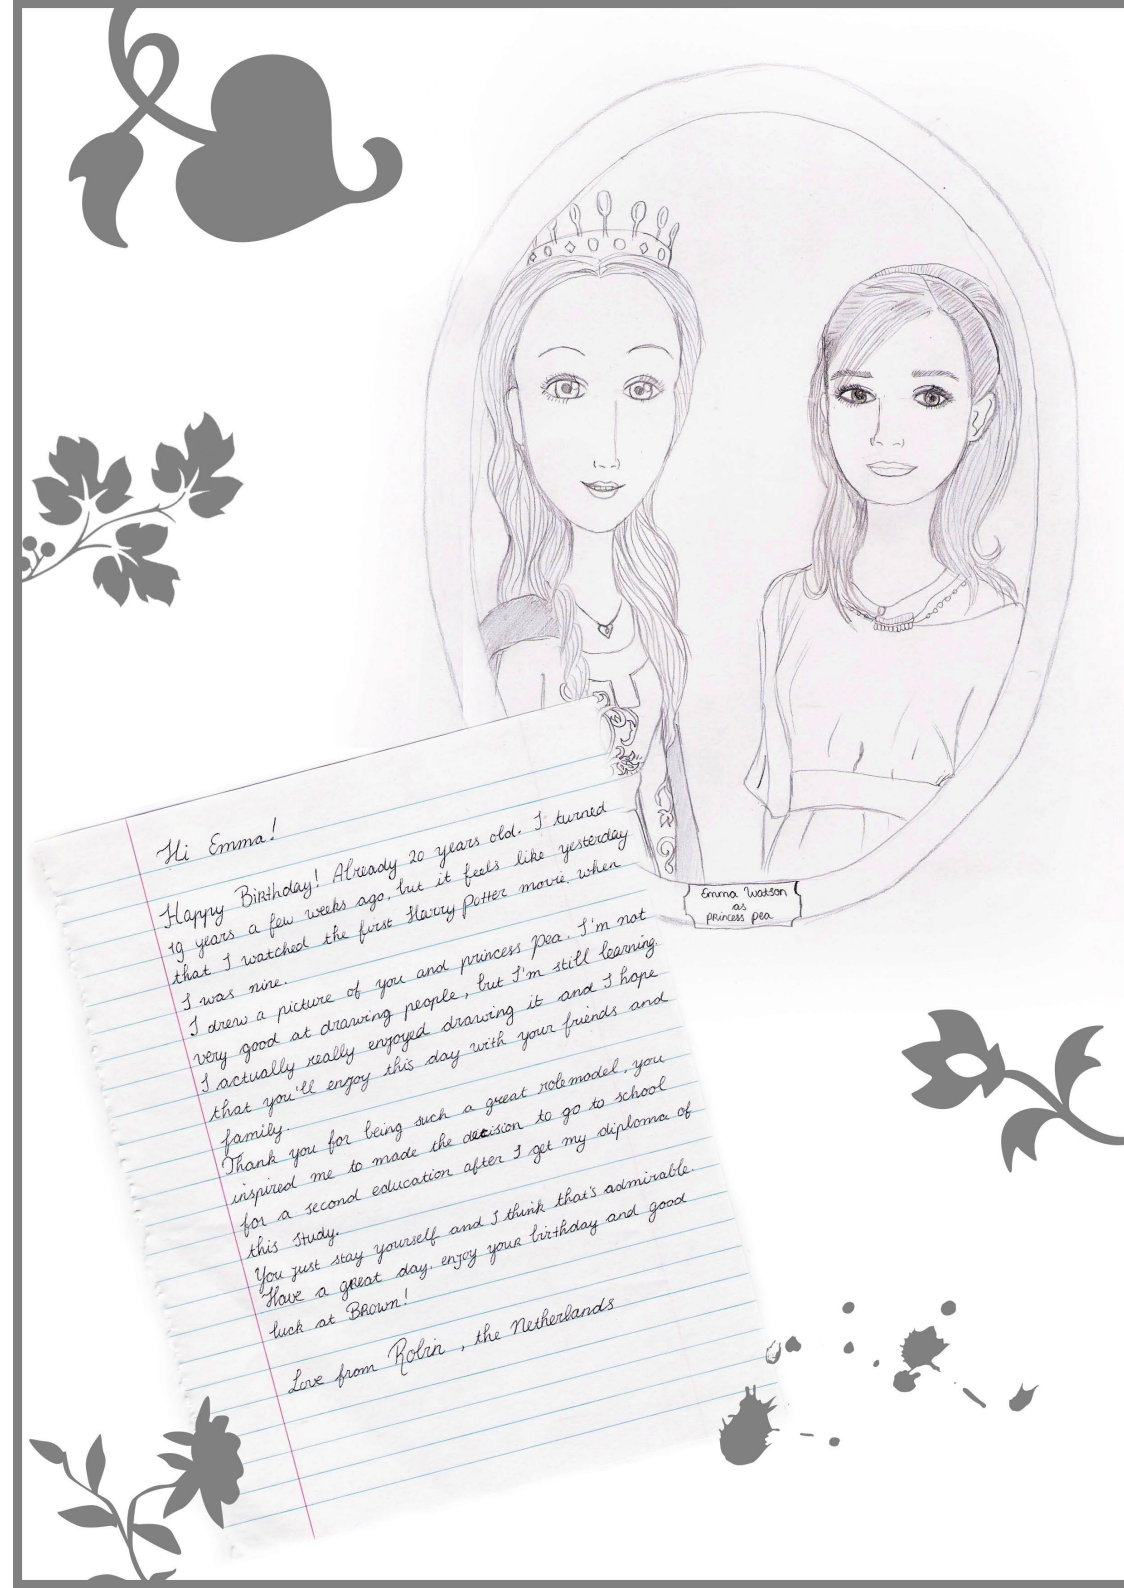 Emma Watson
as
princess pea
Hi Emma!
Happy Birthday! Already 20 years old. I turned
19 years a few weeks ago, but it feels like yesterday
that I watched the first Harry Potter movie, when
I was nine.
I drew a picture of you and princess Pea. I'm not
very good at drawing people, but I'm still learning.
I actually really enjoyed drawing it and I hope
that you'll enjoy this day with your friends and
family.
Thank you for being such a great rolemodel, you
inspired me to made the decision to go to school
for a second education after I get my diploma of
this study.
You just stay yourself and I think that's admirable.
Have a great day, enjoy your birthday and good
luck at Brown!
Love from Robin, the Netherlands